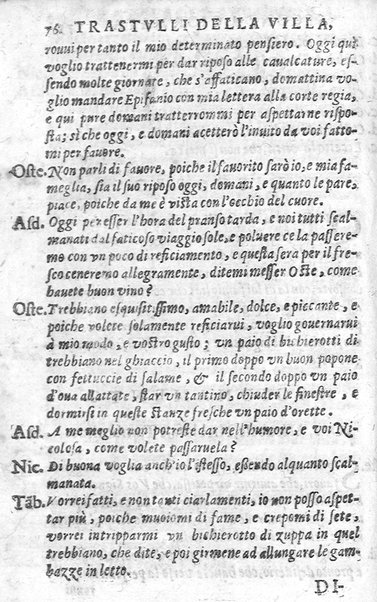 76. TRASTVLLI DELLA VILLA,
rouui per tanto il mio determinato pensiero. Oggi quì
voglio trattenermi per dar riposo alle caualcature, es-
sendo molte giornate, che s'affaticano, domattina vo-
glio mandare Epifanio con mia lettera alla corte regia,
e quì pure domani tratterrommi per aspettarne rispo-
sta; sì che oggi, e domani accetterò l'inuito da voi fatto-
mi per fauore.
Oste. Non parli di fauore, poiche il fauorito sarò io, e mia fa-
meglia, sia il suo riposo oggi, domani, e quanto le pare,
piace, poiche da me è vista con l'occhio del cuore.
Asd. Oggi per esser l'hora del pranso tarda, e noi tutti scal-
manati dal faticoso viaggio sole, e poluere ce la passere-
mo con vn poco di reficiamento, e questa sera per il fre-
sco ceneremo allegramente, ditemi messer Oste, come
hauete buon vino?
Oste. Trebbiano esquisitissimo, amabile, dolce, e piccante, e
poiche volete solamente reficiarui, voglio gouernarui
à mio modo, e vostro gusto; vn paio di buhierotti di
trebbiano nel ghiaccio, il primo doppo vn buon popone
con fettuccie di salame, & il secondo doppo vn paio
d'oua allattate, star vn tantino, chiuder le finestre, e
dormirsi in queste stanze fresche vn paio d'orette.
Asd. A me meglio non potreste dar nell'humore, e voi Ni-
colosa, come volete passaruela?
Nic. Di buona voglia anch'io l'istesso, essendo alquanto scal-
manata.
Tãb. Vorrei fatti, e non tanti ciarlamenti, io non posso aspet-
tar più, poiche muoiomi di fame, e crepomi di sete,
vorrei intripparmi vn bichierotto di zuppa in quel
trebbiano, che dite, e poi girmene ad allungare le gam-
bazze in letto.
DI-